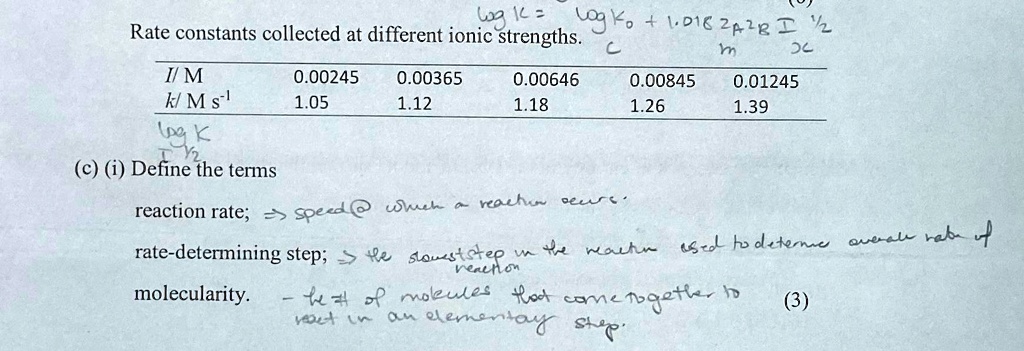 log K = log K₀ + 1.018 ZAZB I ½
Rate constants collected at different ionic strengths.
C m x
I/ M 0.00245 0.00365 0.00646 0.00845 0.01245
k/ M s⁻¹ 1.05 1.12 1.18 1.26 1.39
log K
I ½
(c) (i) Define the terms
reaction rate; ⇒ speed @ which a reaction occurs.
rate-determining step; → the slowest step in the reaction used to determe overall rate of
reaction
molecularity. - the # of molecules that come together to (3)
react in an elementary step.